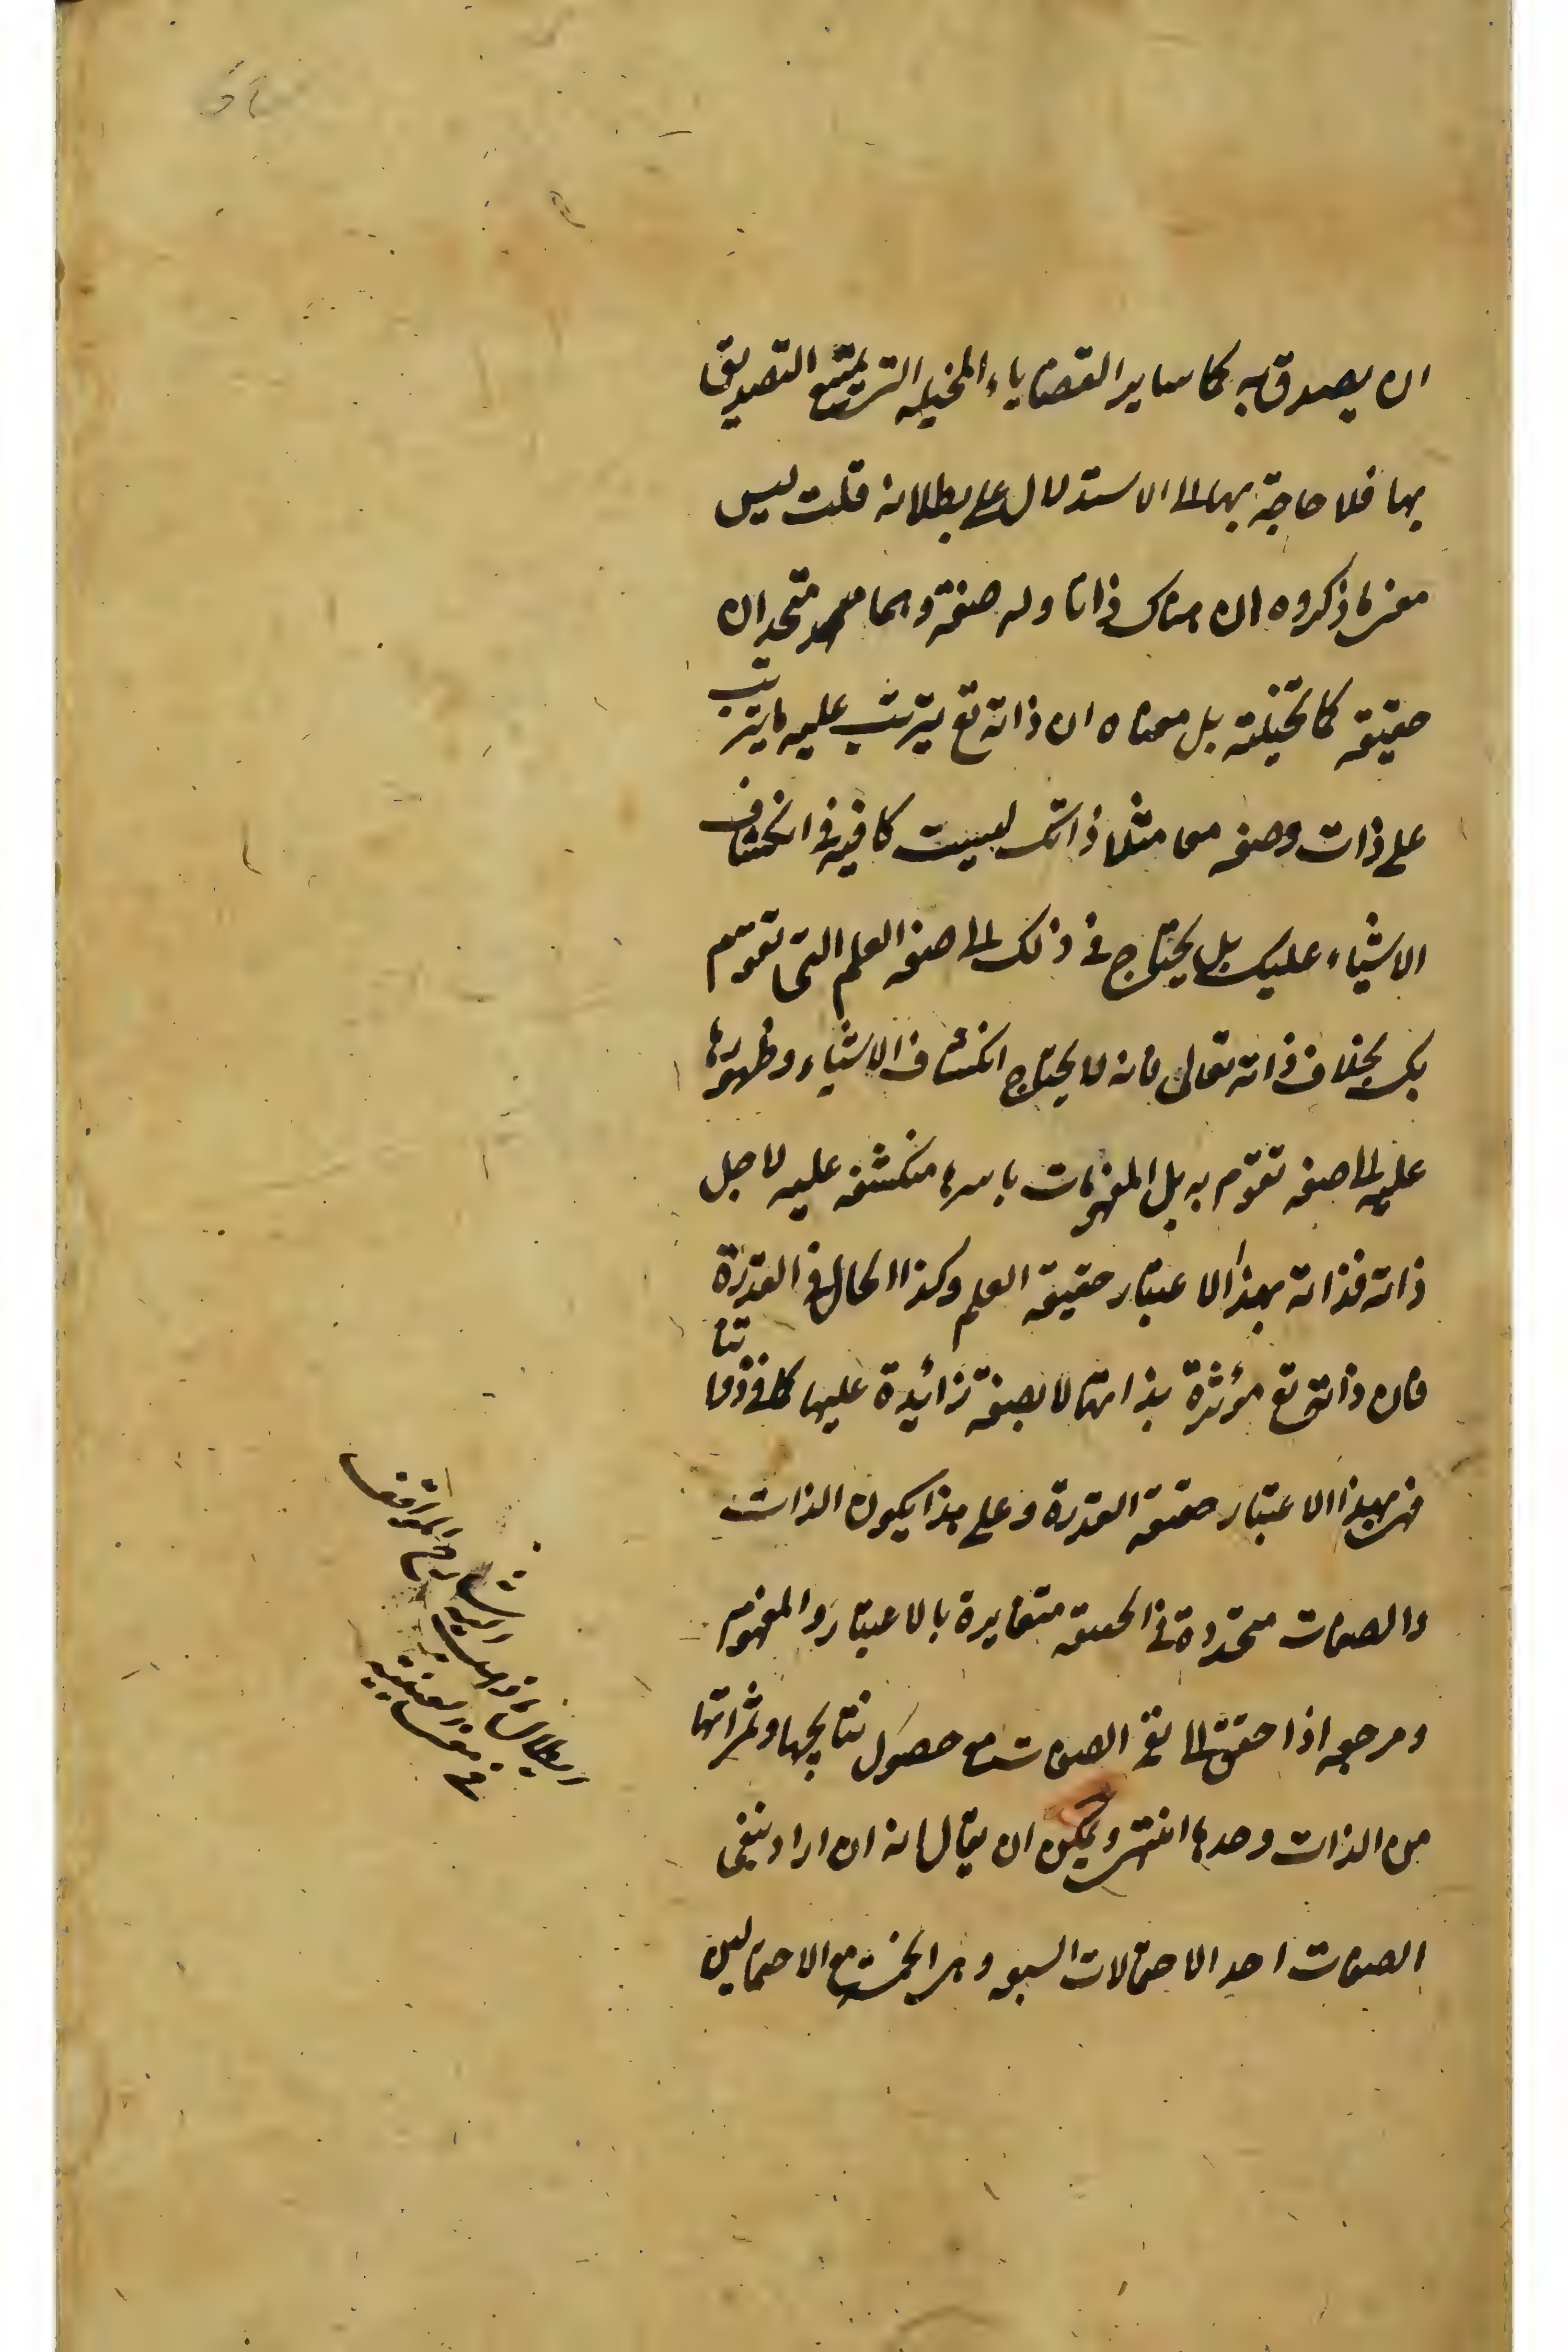 ان يصدق به كما سایر القضایاء المخيله التى يمتنع التصديق
بها فلا حاجة بها الى الاستدلال على بطلانه قلت ليس
معنى ما ذكروه ان هناك ذاتا وله صفة وهما متحدان
حقيقه كما تخيلته بل معناه ان ذاته تع يترتب عليه ما يترتب
على ذات وصفه معا مثلا ذاتك ليست كافيه فى انكشاف
الاشياء عليك بل يحتاج فى ذلك الى صفه العلم التى تقوم
بك بخلاف ذاته تعالى فانه لا يحتاج انكشاف الاشياء وظهورها
عليه الى صفه تقوم به بل المفهومات باسرها منكشفه عليه لاجل
ذاته فذاته بهذا الاعتبار حقيقه العلم وكذا الحال فى القدرة
فان ذاته تع مؤثرة بذاتها لا بصفة زائدة عليها كما فى ذواتنا
فهى بهذا الاعتبار حقيقه القدرة وعلى هذا يكون الذات
والصفات متحدة فى الحقيقه متغايرة بالاعتبار والمفهوم
ومرجعه اذا حقق الى نفى الصفات مع حصول نتايجها وثمراتها
من الذات وحدها انتهى ويمكن ان يقال انه ان اراد بنفى
الصفات احد الاحتمالات السبعه وهى الخمسة مع الاحتمالين
شارح المواقف
ابطال ما ذهب اليه
فى معنى العينيه